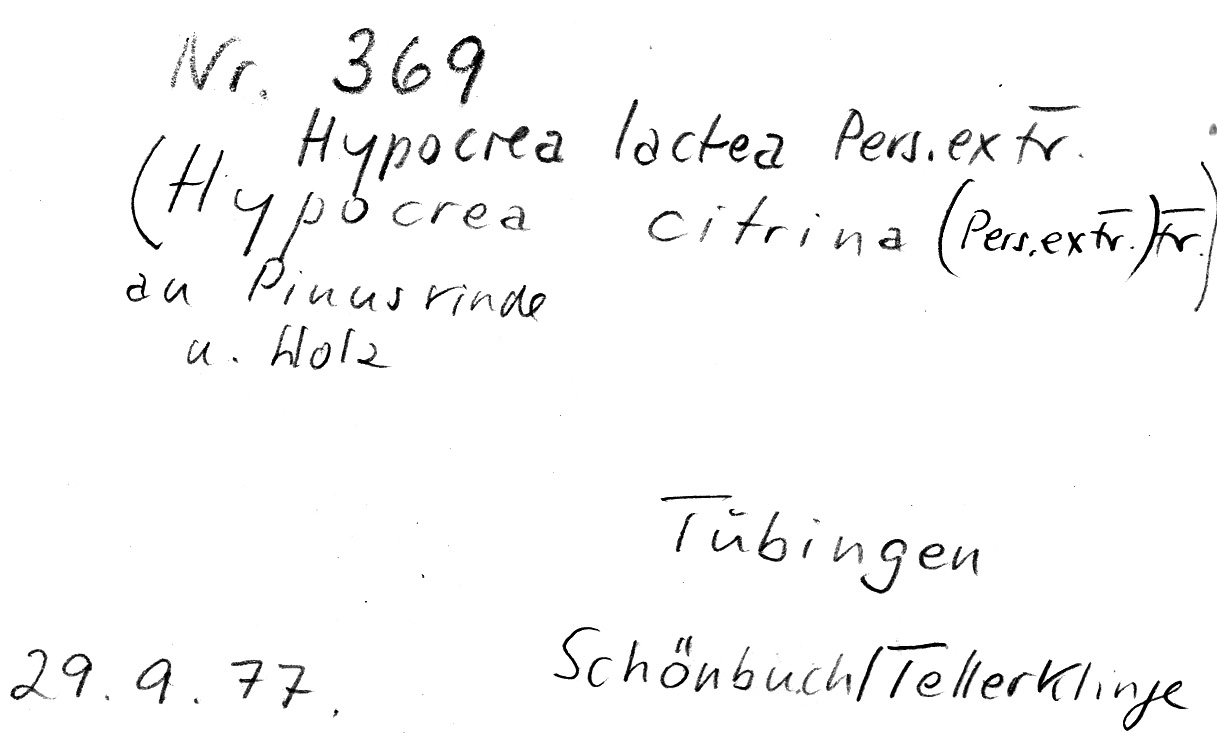 Nr. 369
Hypocrea lactea Pers. ex Fr.
(Hypocrea citrina (Pers. ex Fr.) Fr.)
an Pinusrinde
u. Holz
Tübingen
29.9.77. Schönbuch/Tellerklinge